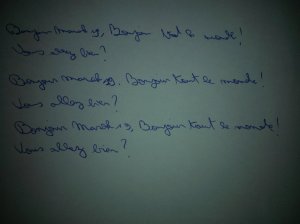 Bonjour Mardi 13, Bonjour tout le monde!
Vous allez bien?
Bonjour Mardi 13, Bonjour tout le monde!
Vous allez bien?
Bonjour Mardi 13, Bonjour tout le monde!
Vous allez bien?